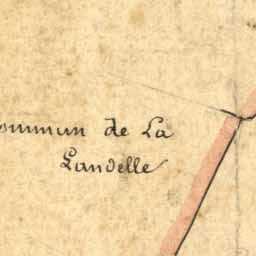 ommun de La
Landelle